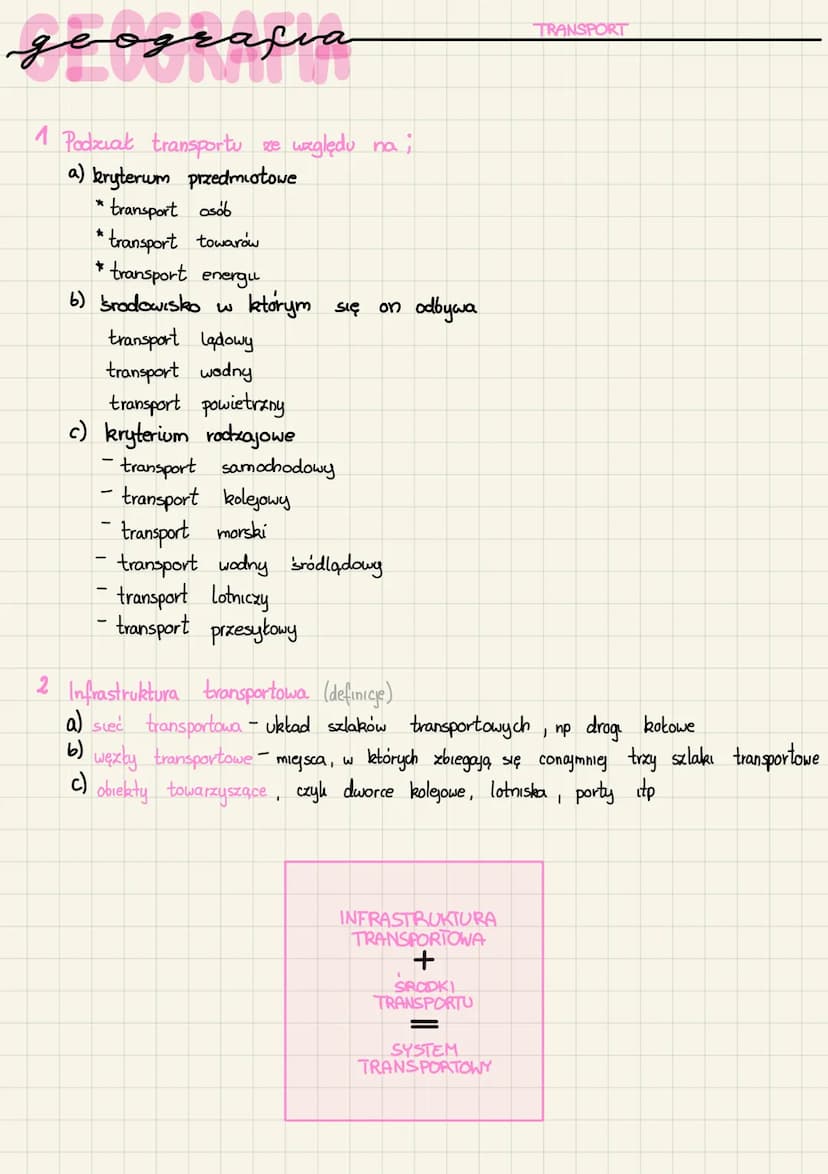 GEOGRAFIA
geografia
TRANSPORT
1 Podział transportu ze względu na ;
a) kryterium przedmiotowe
* transport osób
* transport towarów
* transport energii
b) środowisko w którym się on odbywa
transport lądowy
transport wodny
transport powietrzny
c) kryterium rodzajowe
- transport samochodowy
- transport kolejowy
- transport morski
- transport wodny śródlądowy
- transport lotniczy
- transport przesyłowy
2 Infrastruktura transportowa (definicje)
a) sieć transportowa - układ szlaków transportowych , np drogi kołowe
b) węzły transportowe - miejsca, w których zbiegają się conajmniej trzy szlaki transportowe
c) obiekty towarzyszące , czyli dworce kolejowe, lotniska , porty itp
INFRASTRUKTURA
TRANSPORTOWA
+
ŚRODKI
TRANSPORTU
=
SYSTEM
TRANSPORTOWY